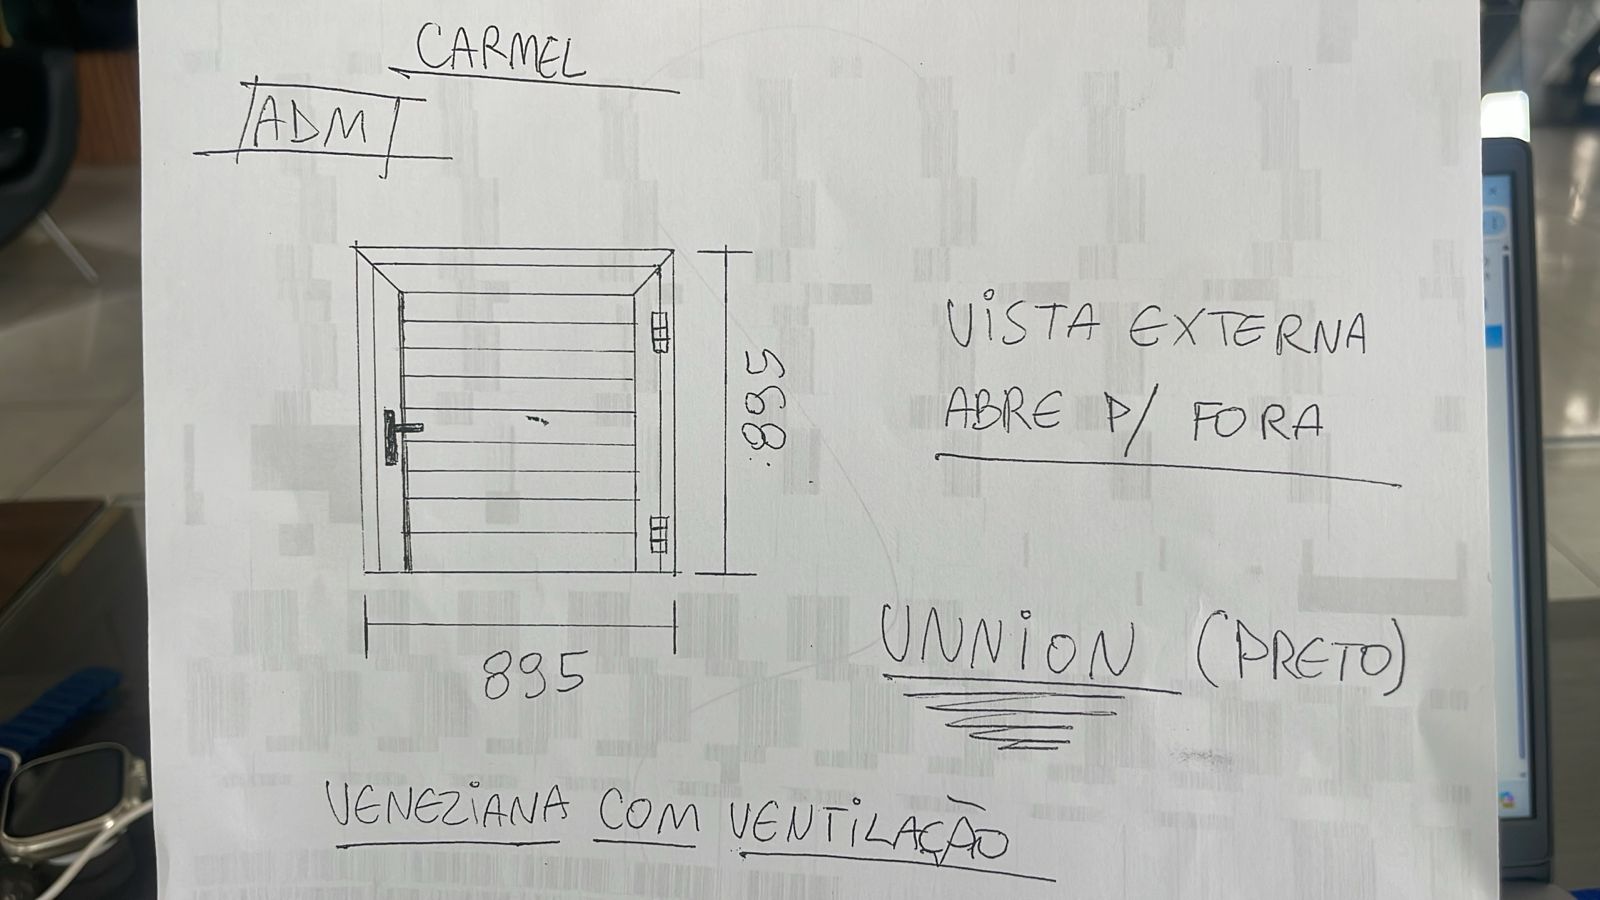 CARMEL
ADM
895
VISTA EXTERNA
ABRE P/ FORA
895
UNNION (PRETO)
VENEZIANA COM VENTILAÇÃO